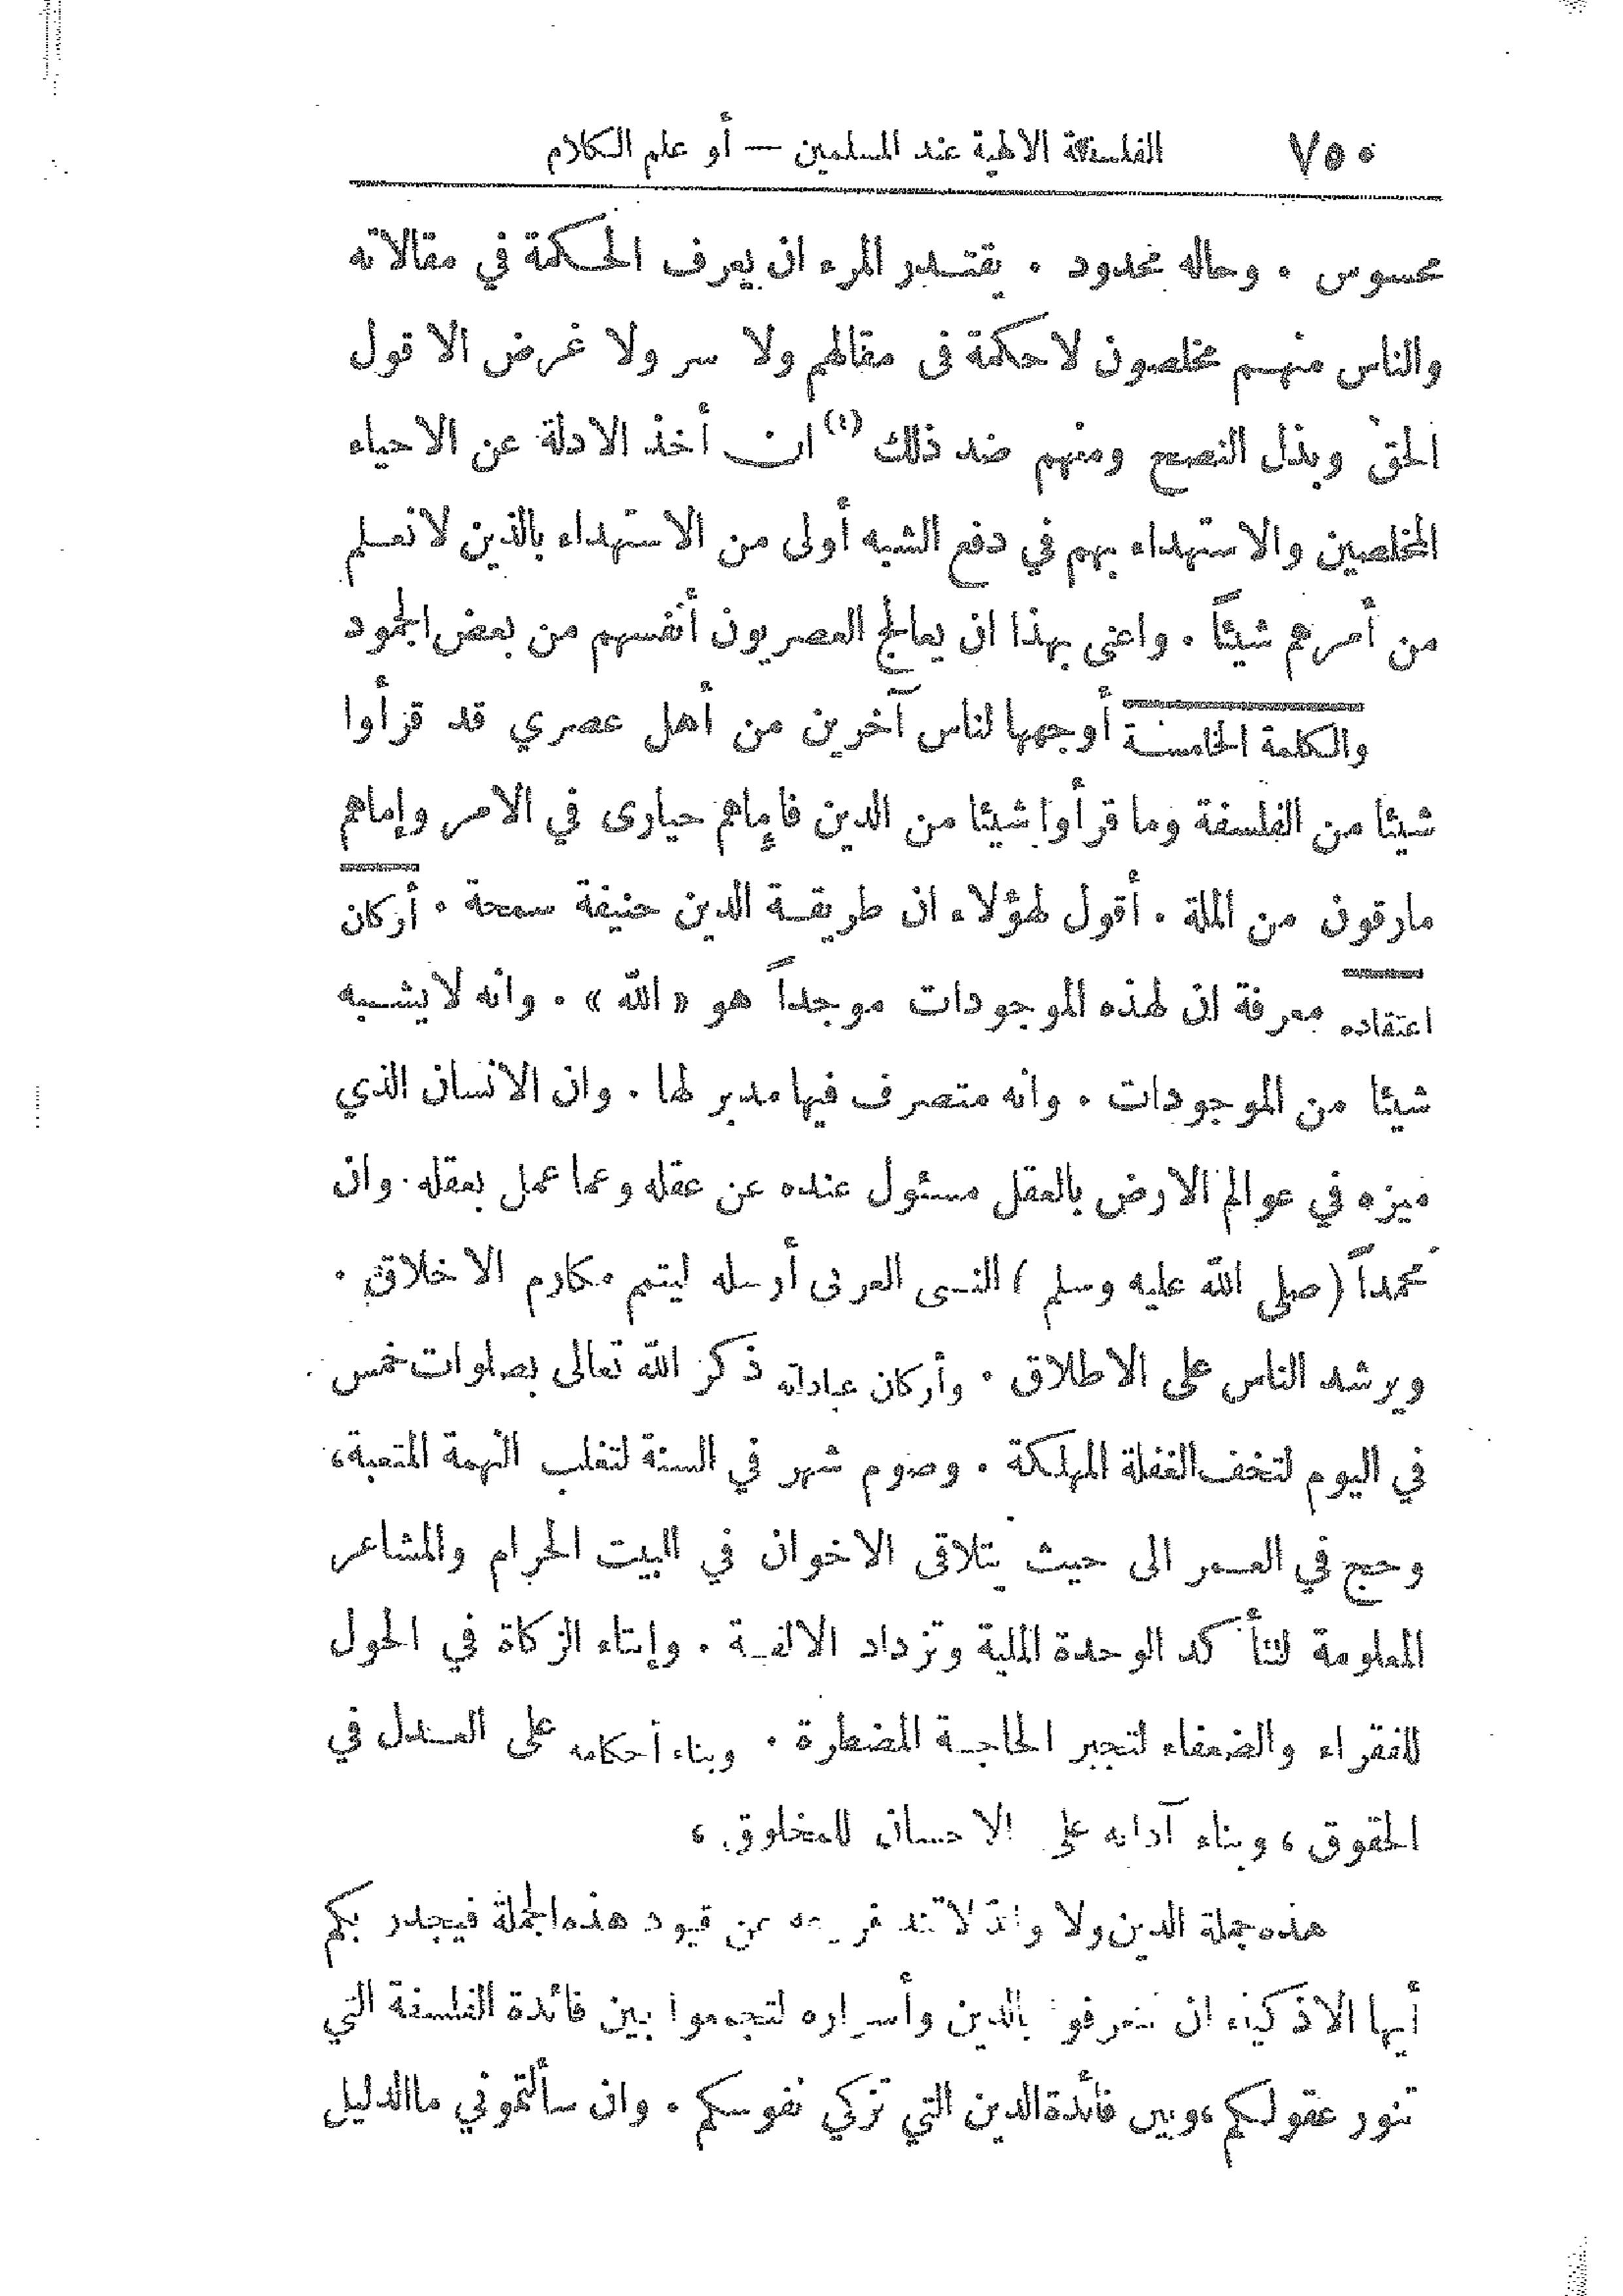 ٧٥٠ الفلسفة الالهية عند المسلمين — أو علم الكلام
محسوس . وحاله محدود . يقتدر المرء ان يعرف الحكمة في مقالاته
والناس منهم مخلصون لا حكمة فى مقالهم ولا سر ولا غرض الا قول
الحق وبذل النصح ومنهم ضد ذلك (١) ان أخذ الادلة عن الاحياء
المخلصين والاستهداء بهم في دفع الشبه أولى من الاستهداء بالذين لا نعلم
من أمرهم شيئاً . واعنى بهذا ان يعالج العصريون أنفسهم من بعض الجمود
والكلمة الخامسة أوجهها لناس آخرين من أهل عصري قد قرأوا
شيئا من الفلسفة وما قرأوا شيئا من الدين فإماهم حيارى في الامر وإماهم
مارقون من الملة . أقول لهؤلاء ان طريقة الدين حنيفة سمحة . أركان
اعتقاده معرفة ان لهذه الموجودات موجداً هو « الله » . وانه لا يشبه
شيئا من الموجودات . وانه متصرف فيها مدبر لها . وان الانسان الذي
ميزه في عوالم الارض بالعقل مسئول عنده عن عقله وعما عمل بعقله . وان
محمداً ( صلى الله عليه وسلم ) النبى العربى أرسله ليتمم مكارم الاخلاق .
ويرشد الناس على الاطلاق . وأركان عباداته ذكر الله تعالى بصلوات خمس
في اليوم لتخف الغفلة المهلكة . وصوم شهر في السنة لتغلب النهمة المتعبة ،
وحج في العمر الى حيث يتلاقى الاخوان في البيت الحرام والمشاعر
المعلومة لتتأكد الوحدة الملية وتزداد الالفة . وإيتاء الزكاة في الحول
للفقراء والضعفاء لتجبر الحاجة المضطرة . وبناء أحكامه على العدل في
الحقوق ، وبناء آدابه على الاحسان للمخلوق ،
هذه جملة الدين ولا عن قيود هذه الجملة فيجدر بكم
أيها الاذكياء ان بالدين وأسراره لتجمعوا بين فائدة الفلسفة التي
تنور عقولكم ، وبين فائدة الدين التي تزكي نفوسكم . وان سألتموني ما الدليل